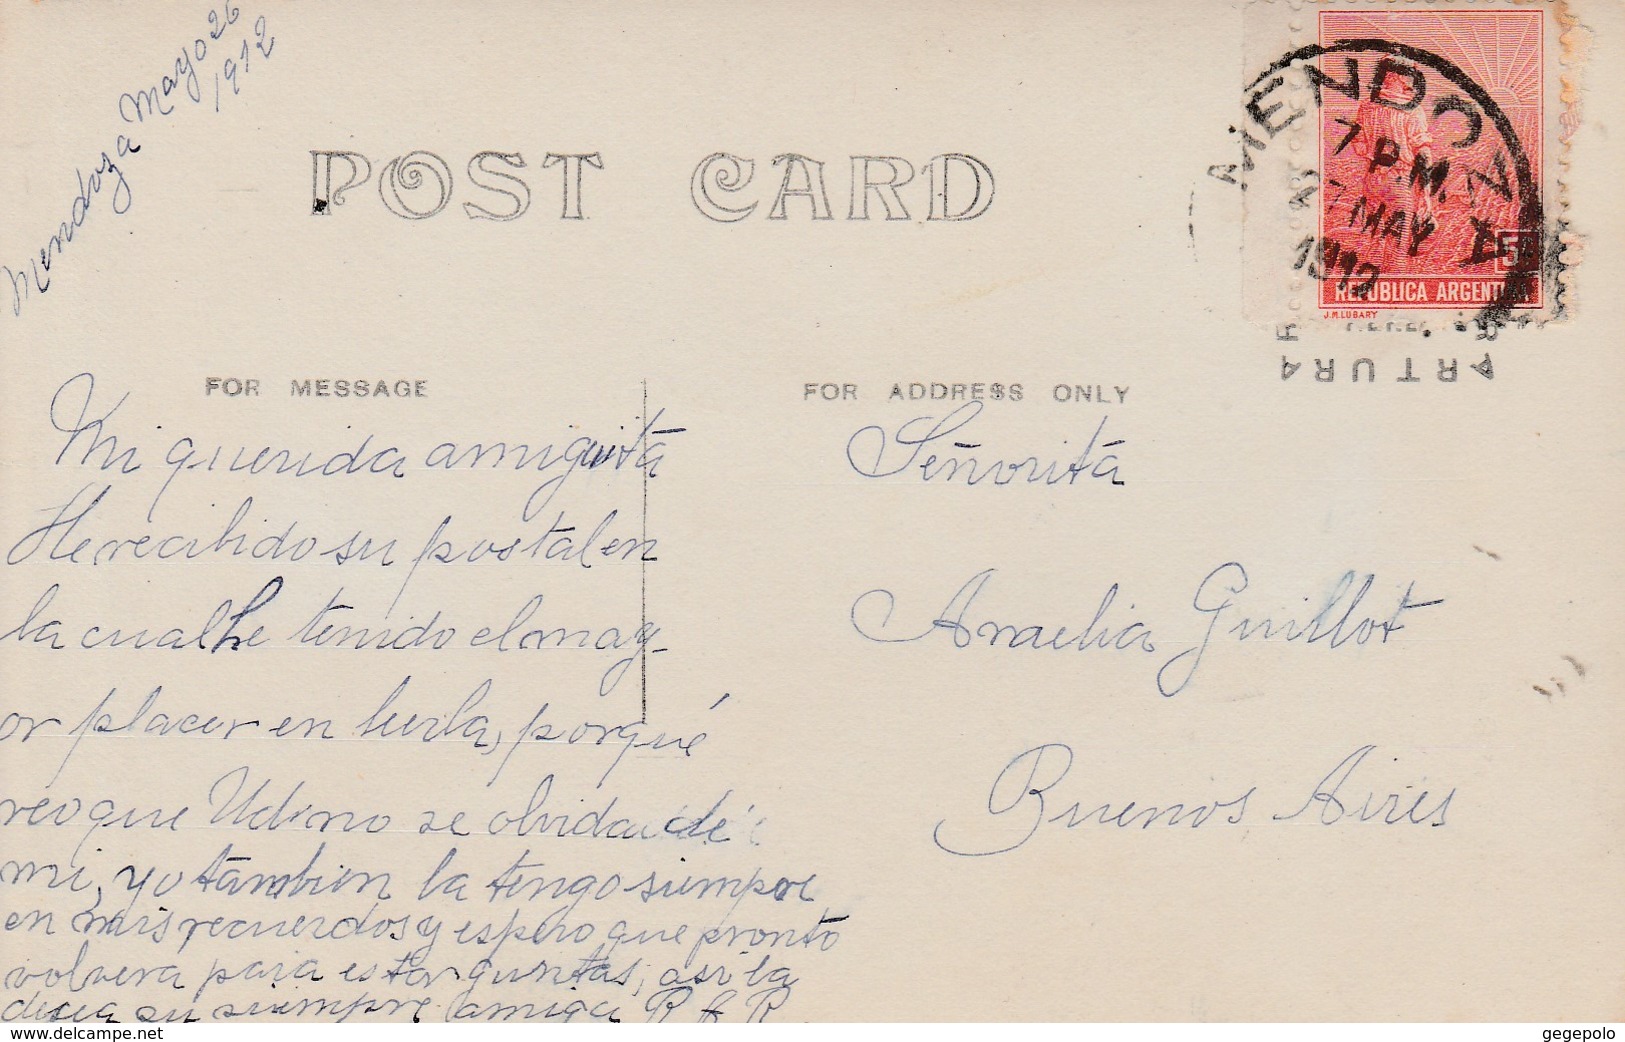 Mendoza Mayo 26
1912
POST CARD
MENDOZA
7 P.M.
27 MAY
1912
5
REPUBLICA ARGENTINA
J.M. LUBARY
ARTURA
FOR MESSAGE
FOR ADDRESS ONLY
Mi querida amiguita
He recibido su postal en
la cual he tenido el may-
or placer en leerla, porqué
veo que Ud. no se olvida de
mi, yo tambien la tengo siempre
en mis recuerdos y espero que pronto
volvera para estar guntas, asi la
desea su siempre amiga R
Señorita
Amelia Guillot
Buenos Aires
www.delcampe.net
gegepolo